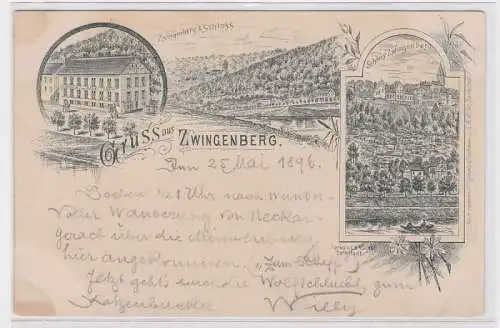 Zwingenberg & Schloss
Schloss Zwingenberg
Gruss aus ZWINGENBERG.
Den 25 Mai 1896.
Soeben ½1 Uhr nach wunder-
voller Wanderung von Neckar-
gerach über die
hier angekommen. "Zum Schiff"
Jetzt geht's durch die Wolfschlucht, zum
Katzenbuckel Willy